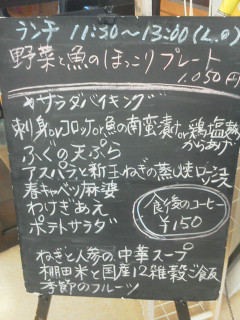 ランチ 11:30～13:00(L.o)
野菜と魚のほっこりプレート
1.050円
サラダバイキング
刺身orコロッケor魚の南蛮漬けor鶏塩麹
からあげ
ふぐの天ぷら
アスパラと新玉ねぎの蒸し焼ロースソース
春キャベツ麻婆
わけぎあえ
ポテトサラダ
食後のコーヒー
¥150
ねぎと人参の中華スープ
棚田米と国産12雑穀ご飯
季節のフルーツ